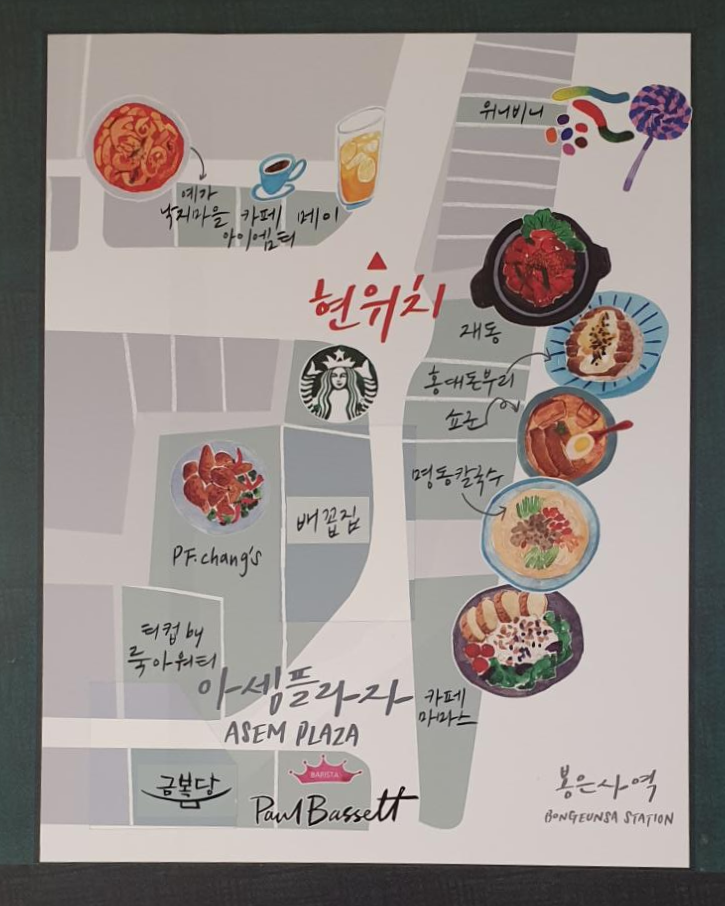 위니비니
예가
낙지마을
카페
아이엠티
메이
현위치
재동
홍대돈부리
쇼군
명동칼국수
배꼽집
P.F. chang's
티컵 by
룩아워티
아셈플라자
ASEM PLAZA
카페
마마스
금복당
BARISTA
Paul Bassett
봉은사역
BONGEUNSA STATION